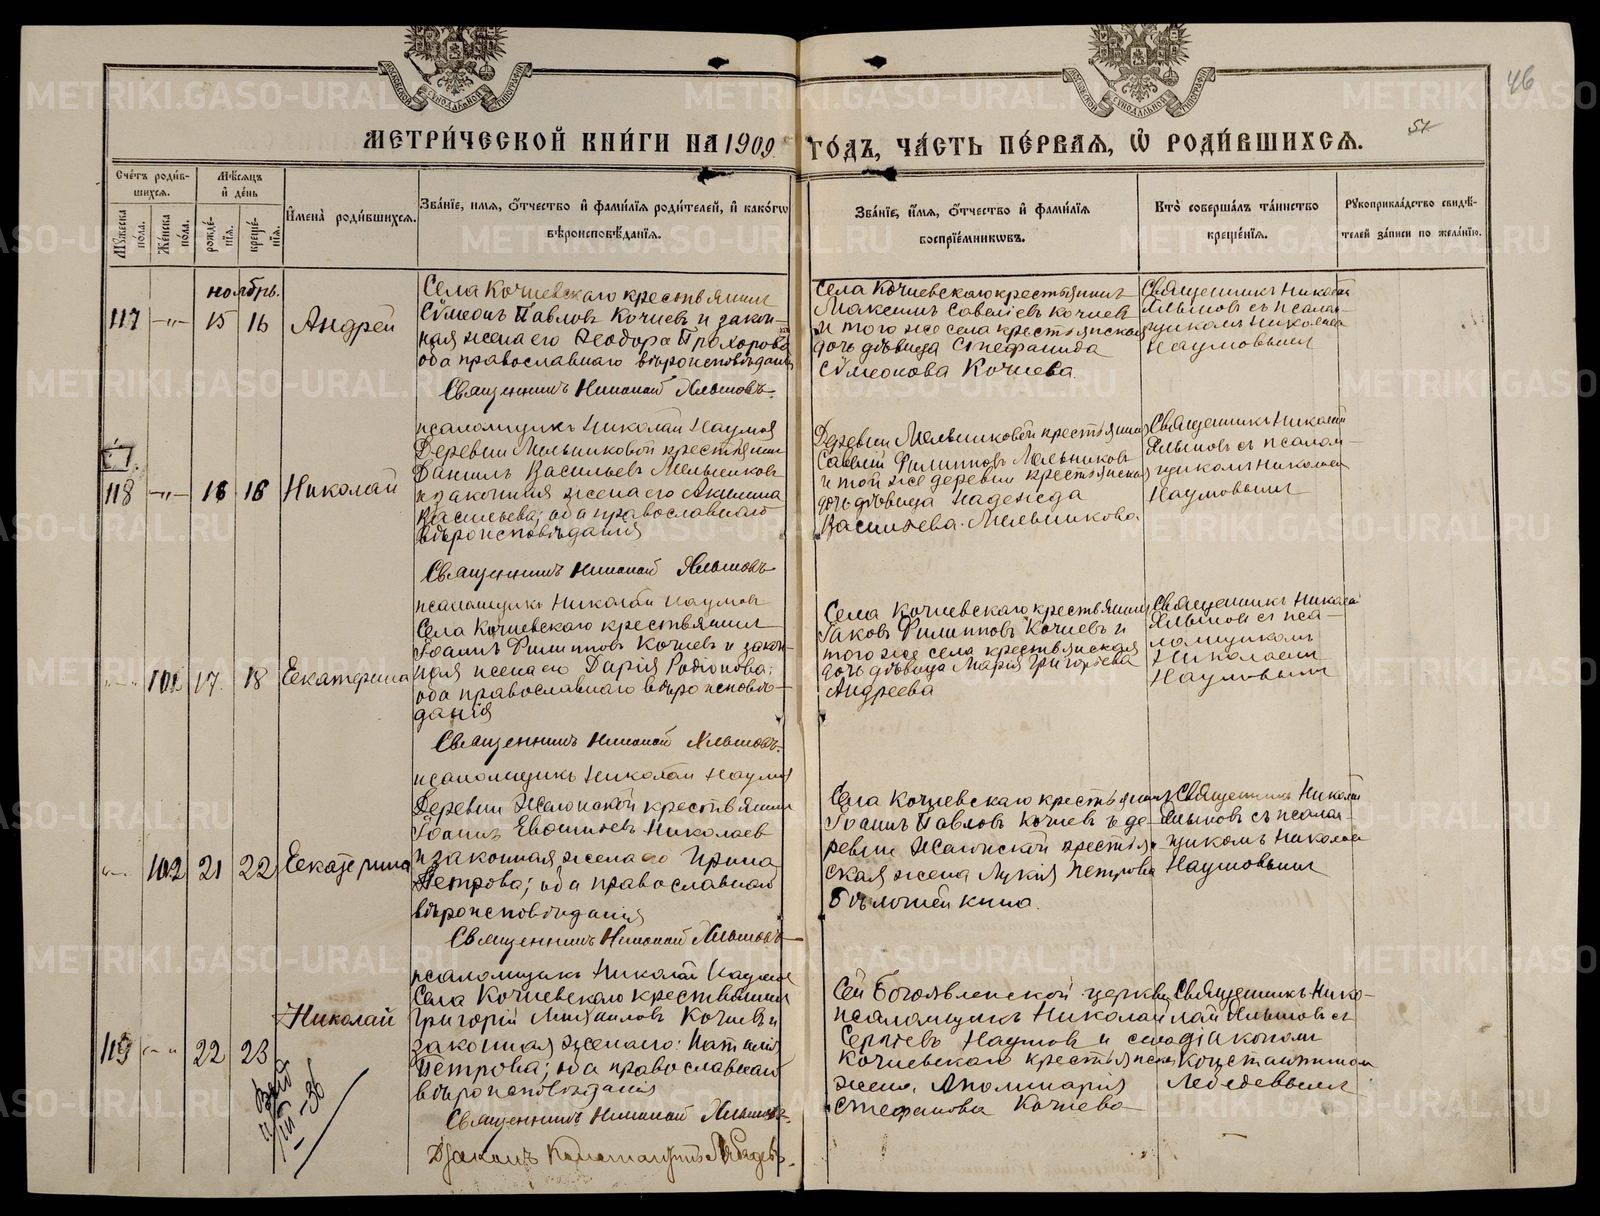 46
51
МЕТРИ́ЧЕСКОЙ КНИ́ГИ НА 1909 ГО́ДЪ, ЧА́СТЬ ПЕ́РВАЯ, Ѡ҆ РОДИ́ВШИХСЯ.
Сче́тъ роди́в-
шихся.
Мѣ́сяцъ
и҆ де́нь
Му́жеска по́ла.
Же́нска по́ла.
рожде́-
нїя.
креще́-
нїя.
И҆мена̀ роди́вшихся.
Зва́нїе, и҆́мя, ѻ҆́тчество и҆ фами́лїя роди́телей, и҆ како́гѡ
вѣроисповѣ́данїя.
Зва́нїе, и҆́мя, ѻ҆́тчество и҆ фами́лїя
воспрїе́мникѡвъ.
Кто̀ соверша́лъ та́инство
креще́нїя.
Рꙋкоприкла́дство свидѣ́-
телей за́писи по жела́нїю.
ноябрь.
117 —„— 15 16 Андрей
Села Кочневскаго крестьянин
Сѵмеонъ Павловъ Кочневъ и закон-
ная жена его Ѳеодора Прохорова
оба православнаго вѣроисповѣданія
Священникъ Николай
псаломщикъ Николай Наумов
Села Кочневскаго крестьянин
Максимъ Савельевъ Кочневъ
и того же села крестьянская
дочь дѣвица Стефанида
Сѵмеонова Кочнева.
Священникъ Николай
съ псалом-
щикомъ Николаем
Наумовым
118 —„— 16 16 Николай
Деревни Мельниковой крестьянин
Даниилъ Васильевъ Мельников
и законная жена его Акилина
Васильева; оба православнаго
вѣроисповѣданія
Священникъ Николай
псаломщикъ Николай Наумов
Деревни Мельниковой крестьянин
Савватий Филипповъ Мельников
и той же деревни крестьянская
дочь дѣвица Надежда
Васильева Мельникова
Священникъ Николай
съ псалом-
щиком Николаем
Наумовым
101 17 18 Екатерина
Села Кочневскаго крестьянин
Іоаннъ Филиппов Кочневъ и закон-
ная жена его Дарія Родіонова;
оба православнаго вѣроисповѣ-
данія
Священникъ Николай
псаломщикъ Николай Наумов
Села Кочневскаго крестьянин
Іаковъ Филипповъ Кочневъ и
того же села крестьянская
дочь дѣвица Марія Григорьева
Андреева
Священникъ Николай
съ пса-
ломщиком
Николаем
Наумовым
102 21 22 Екатерина
Деревни крестьянин
Іоаннъ Николаев
и законная жена его Ирина
Петрова; оба православнаго
вѣроисповѣданія
Священникъ Николай
псаломщикъ Николай Наумов
Села Кочневскаго крестьянин
Іоаннъ Павловъ Кочневъ и де-
ревни крестьян-
ская жена Лукія Петрова
Священникъ Николай
съ псалом-
щиком Николаем
Наумовым
119 22 23 Николай
Села Кочневскаго крестьянин
Григорій Михаиловъ Кочневъ и
законная жена его: Наталія
Петрова; оба православнаго
вѣроисповѣданія
Священникъ Николай
Діаконъ Константинъ Лебедевъ.
Сей Богоявленской церкви
псаломщикъ Николай
Сергѣевъ Наумов и села
Кочневскаго крестьянская
жена, Аполинарія
Стефанова Кочнева
Священникъ Нико-
лай съ
діаконом
Константином
Лебедевым